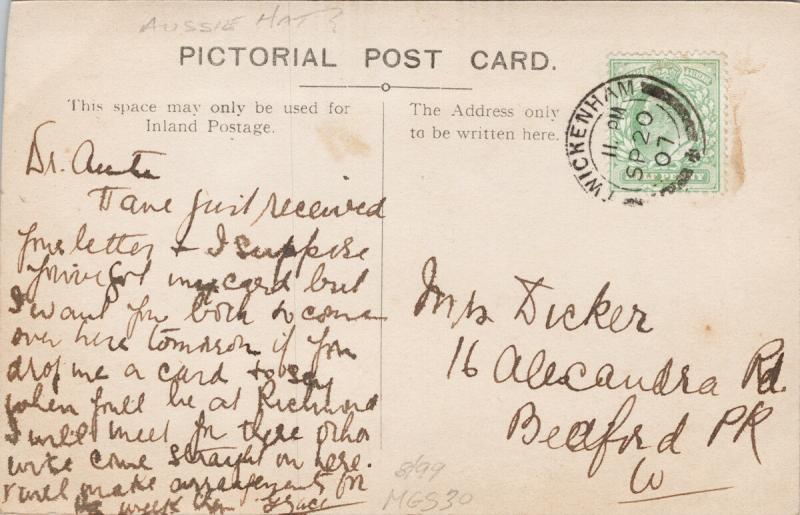 AUSSIE HAT?
PICTORIAL POST CARD.
This space may only be used for
Inland Postage.
The Address only
to be written here.
TWICKENHAM
11 PM
SP 20
07
HALF PENNY
Dr. Aunte
Have just received
your letter + I suppose
you've got my card but
I want you both to come
over here tomorrow if you
drop me a card to say
when you'll be at Richmond
I will meet you there other
wise come straight on here.
I will make arrangements for
week then Grace
Mrs Dicker
16 Alexandra Rd.
Bedford PK
W
8/99
MGS30